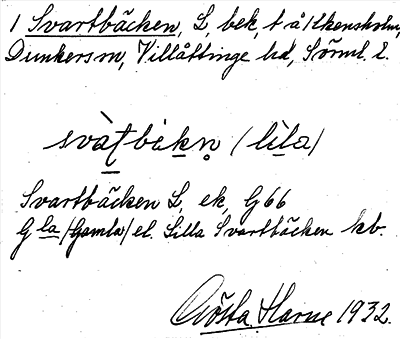 1 Svartbäcken, L, bek, t å Åkensholm,
Dunkers sn, Villåttinge hd, Sörml. l.
svàṭbèkn̥ (lìla)
Svartbäcken L, ek, G66
G la /Gamla/ el. Lilla Svartbäcken kb.
Gösta Harne 1932.